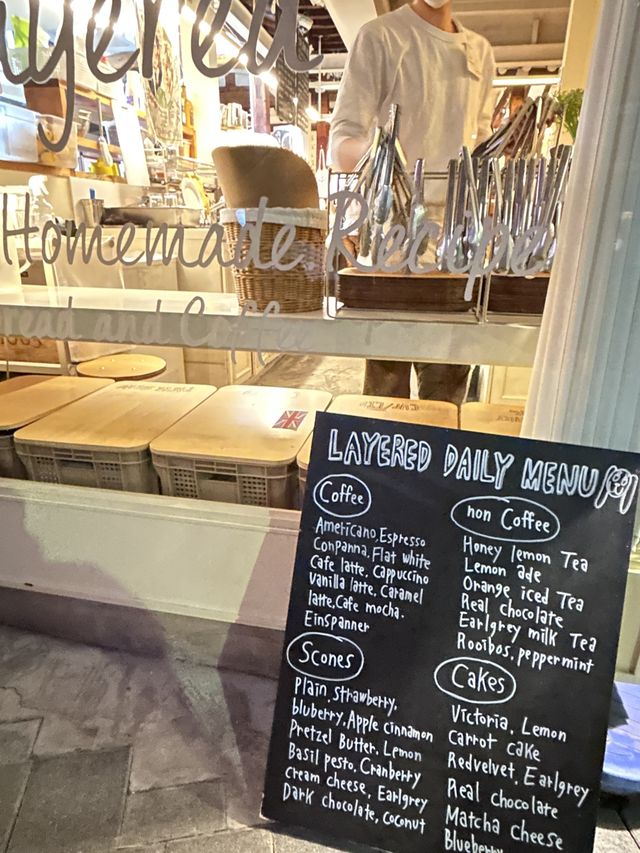 ayered
Homemade Recipe
read and Coffee
LAYERED DAILY MENU
Coffee
Americano, Espresso
Conpanna, Flat white
Cafe latte, Cappuccino
Vanilla latte, Caramel
latte, Cafe mocha.
Einspanner
non Coffee
Honey lemon Tea
Lemon ade
Orange iced Tea
Real chocolate
Earlgrey milk Tea
Rooibos, peppermint
Scones
Plain, Strawberry,
bluberry, Apple cinnamon
Pretzel Butter, Lemon
Basil pesto, Cranberry
cream cheese, Earlgrey
Dark chocolate, coconut
Cakes
Victoria, Lemon
Carrot cake
Redvelvet, Earlgrey
Real chocolate
Matcha cheese
Blueberry